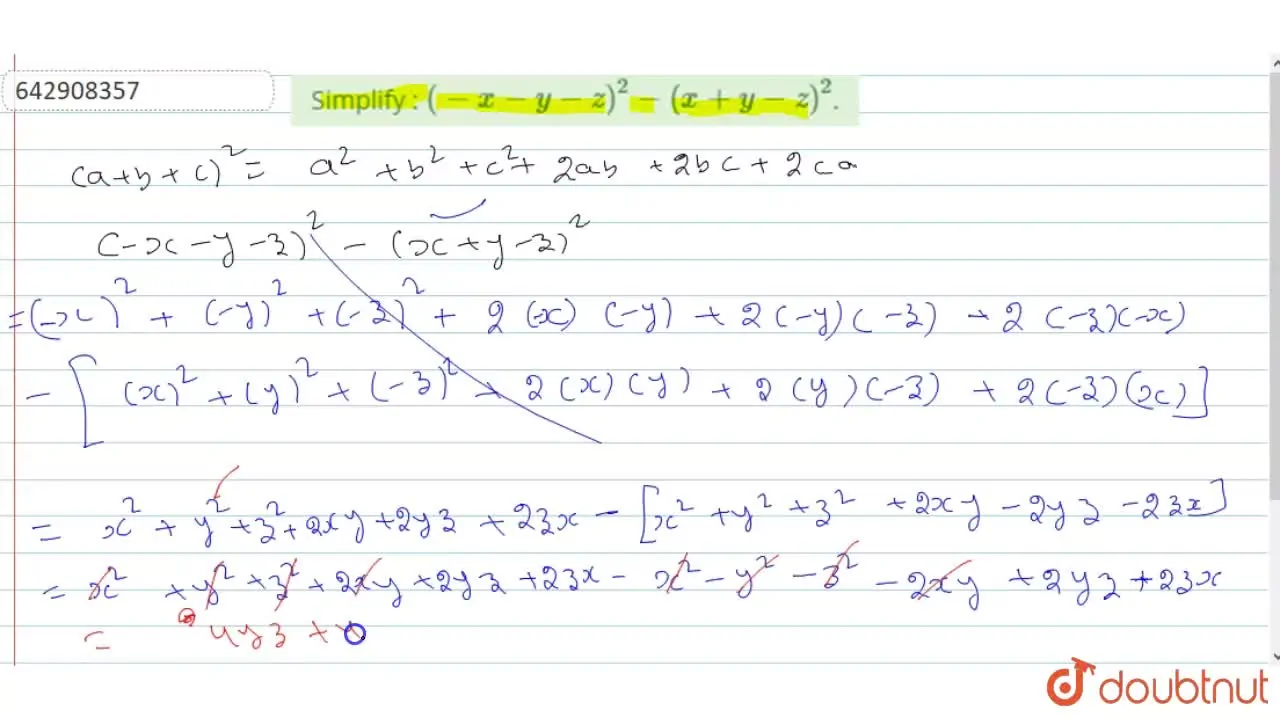 642908357
Simplify : (−x − y − z)² − (x + y − z)².
(a+b+c)² = a² + b² + c² + 2ab + 2bc + 2ca
(-x-y-z)² - (x+y-z)²
= (-x)² + (-y)² + (-z)² + 2(-x)(-y) + 2(-y)(-z) + 2(-z)(-x)
- [(x)² + (y)² + (-z)² + 2(x)(y) + 2(y)(-z) + 2(-z)(x)]
= x² + y² + z² + 2xy + 2yz + 2zx - [x² + y² + z² + 2xy - 2yz - 2zx]
= x² + y² + z² + 2xy + 2yz + 2zx - x² - y² - z² - 2xy + 2yz + 2zx
= 4yz +
doubtnut